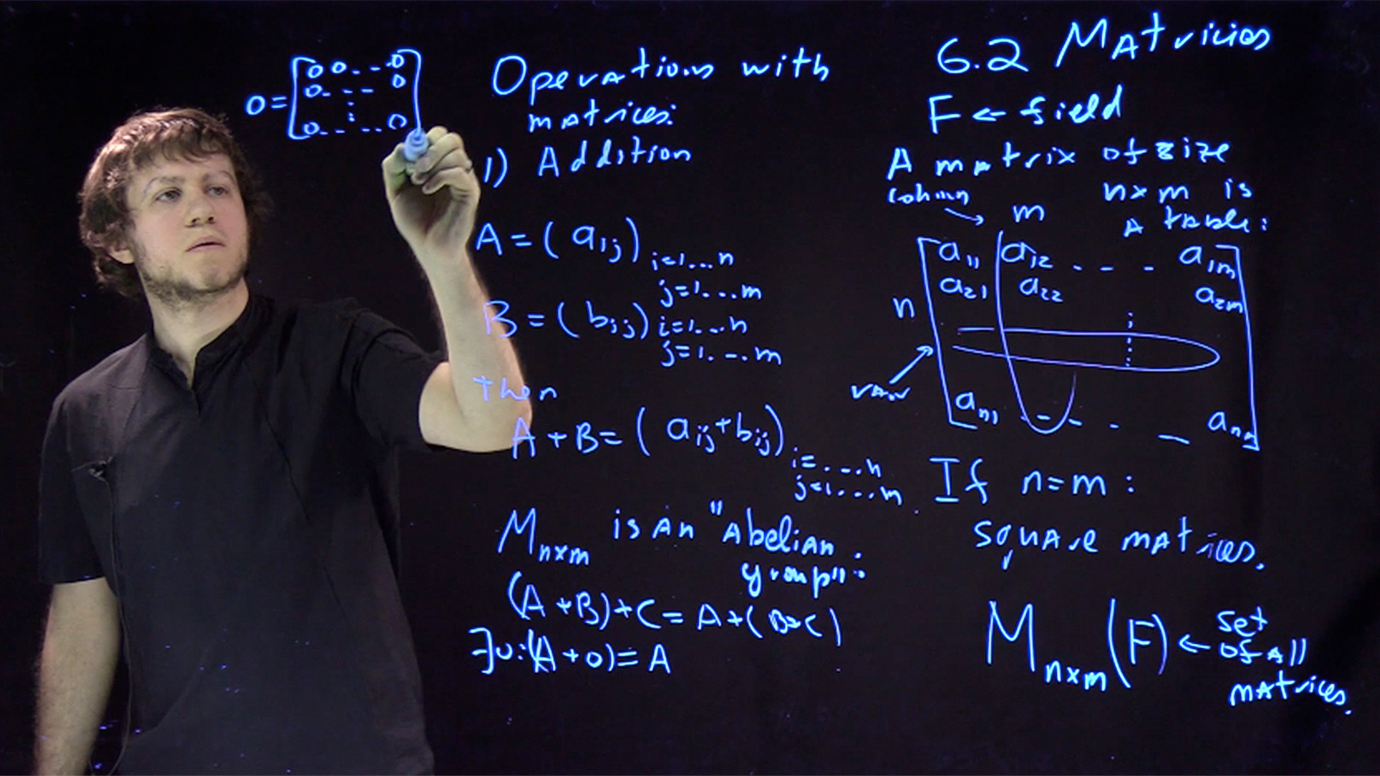 0 = [ 0 0 . . . 0
0 . - - 0
⋮
0 . . . . 0 ]
Operations with
matrices:
1) Addition
A = ( aij ) i=1...n
j=1...m
B = ( bij ) i=1...n
j=1...m
then
A + B = ( aij + bij )
i=....n
j=1....m
Mnxm is an "Abelian
group":
(A + B) + C = A + ( B + C )
∃0:(A + 0) = A
6.2 Matricies
F ← field
A matrix of size
nxm is
a table:
column
m
a11 a12 - - - a1m
a21 a22 a2m
n
raw
an1 . - - . - anm
If n=m :
square matrices.
Mnxm (F) ← set
of all
matrices.